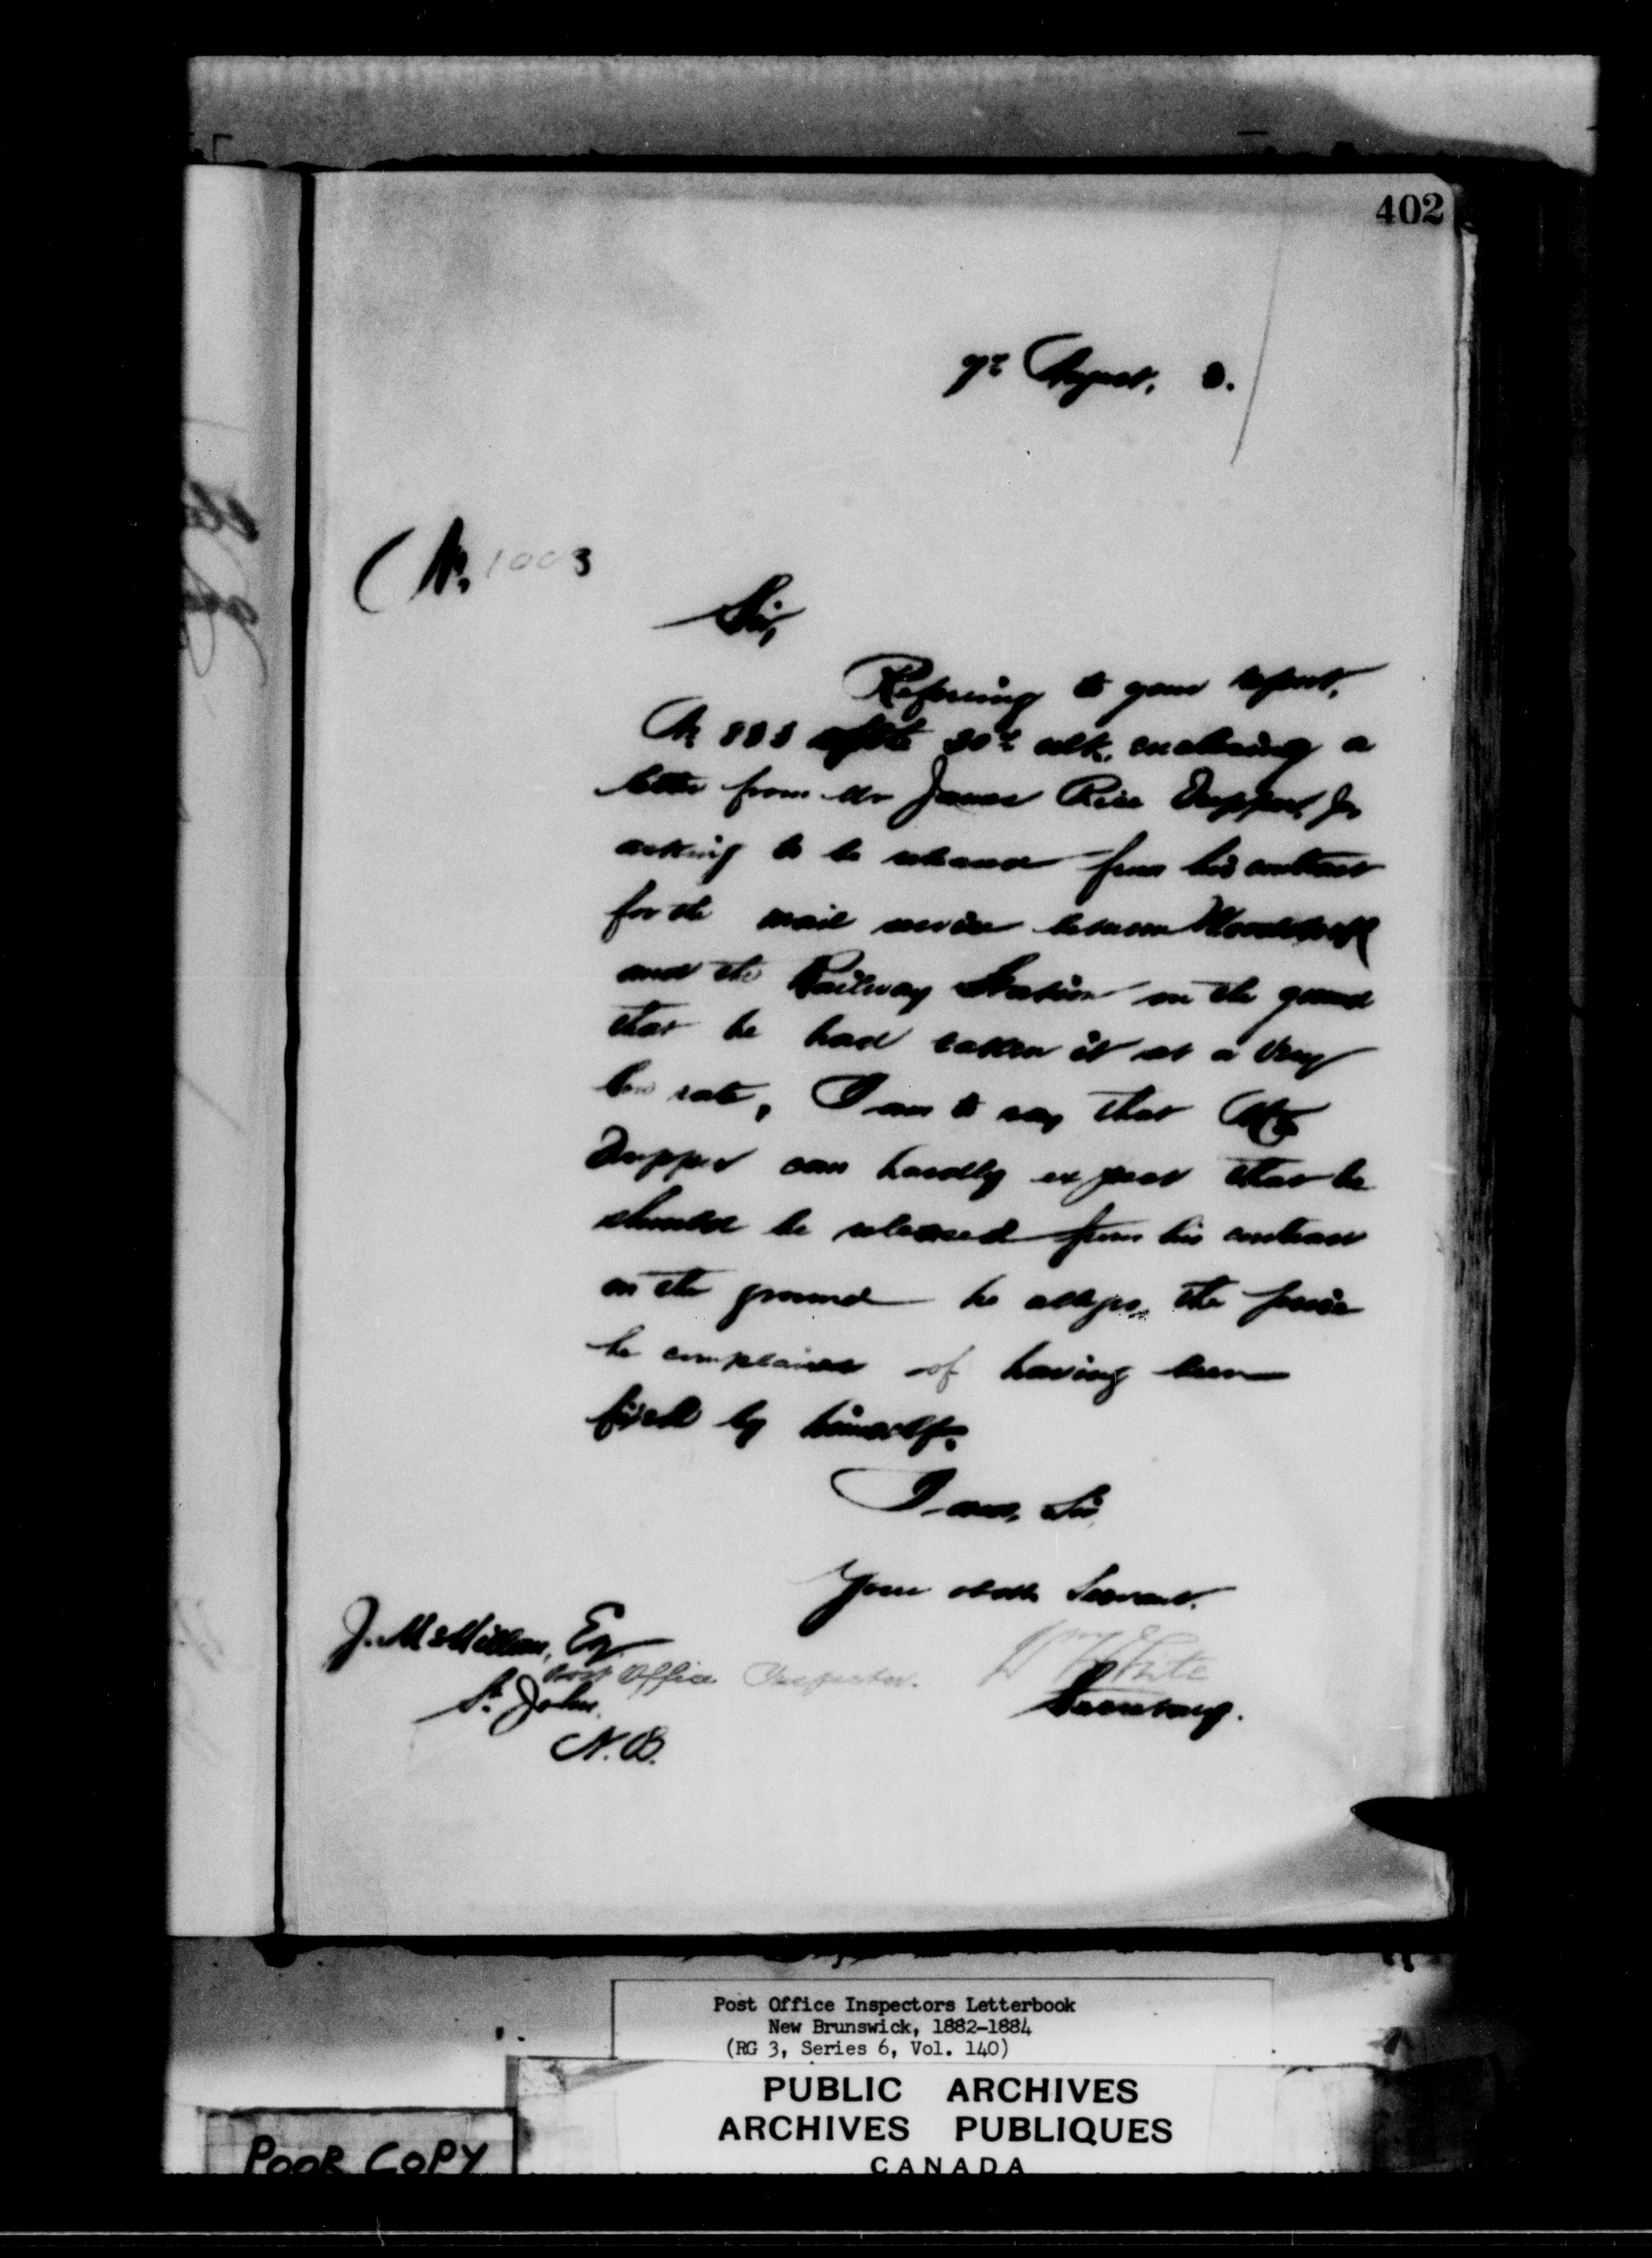 402
August, 3.
No. 1003
Sir,
Referring to your report,
No. of the 30th ulto. enclosing a
letter from Mr James Rice Jr
asking to be released from his contract
for the mail service between Woodstock
and the Railway Station on the ground
that he had taken it at a very
low rate, I am to say that Mr
can hardly expect that he
should be released from his contract
on the ground he alleges, the price
he complains of having been
fixed by himself.
I am, Sir,
Your obdt. Servant.
J. McMillan, Esq.
Post Office Inspector.
St. John,
N.B.
White
Secretary.
Post Office Inspectors Letterbook
New Brunswick, 1882-1884
(RG 3, Series 6, Vol. 140)
PUBLIC ARCHIVES
ARCHIVES PUBLIQUES
CANADA
POOR COPY